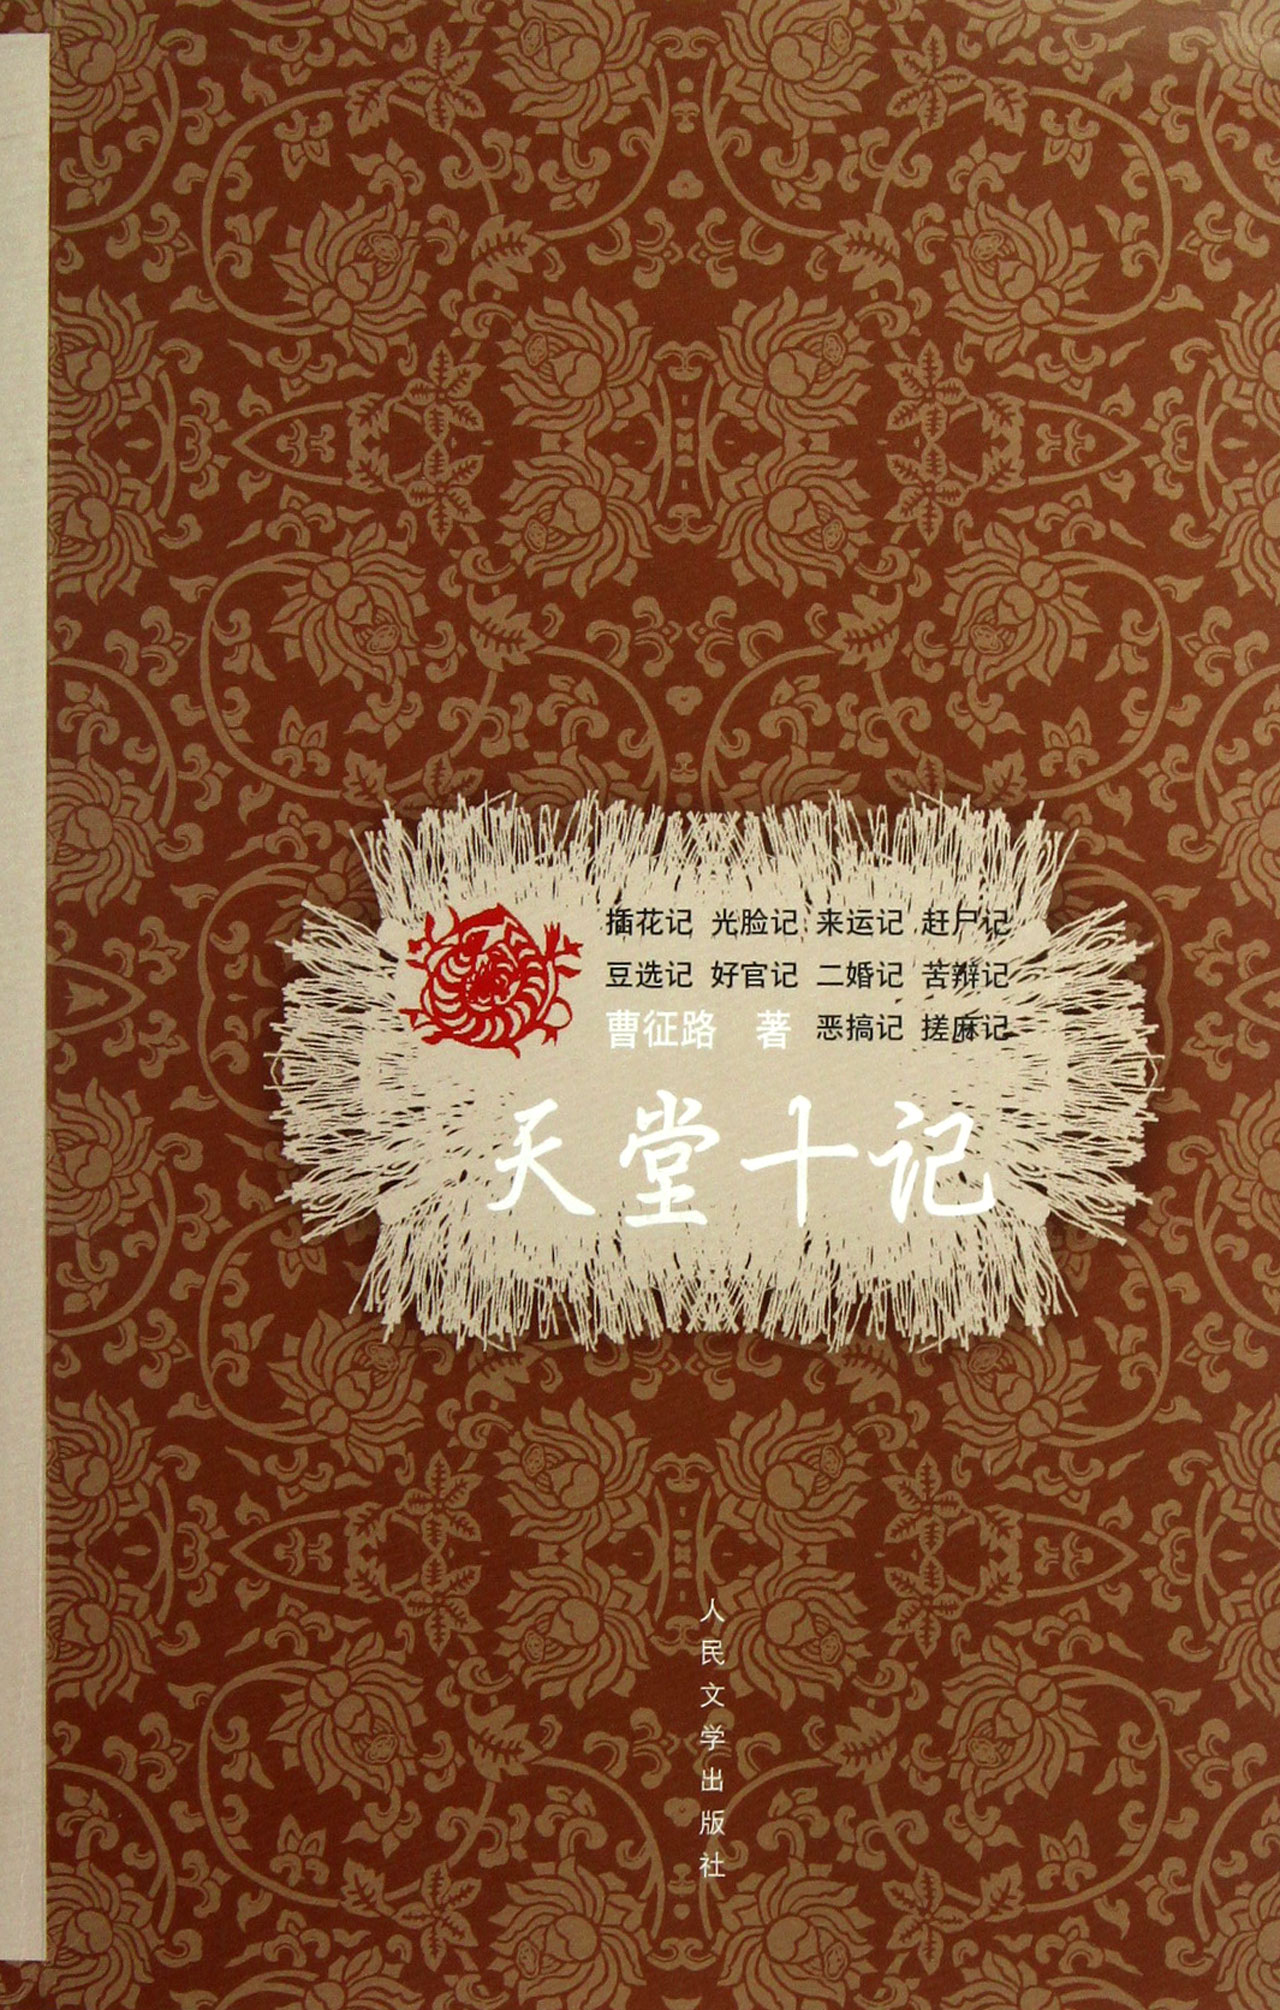 插花记 光脸记 来运记 赶尸记
豆选记 好官记 二婚记 苦辩记
曹征路 著 恶搞记 搓麻记
天堂十记
人民文学出版社